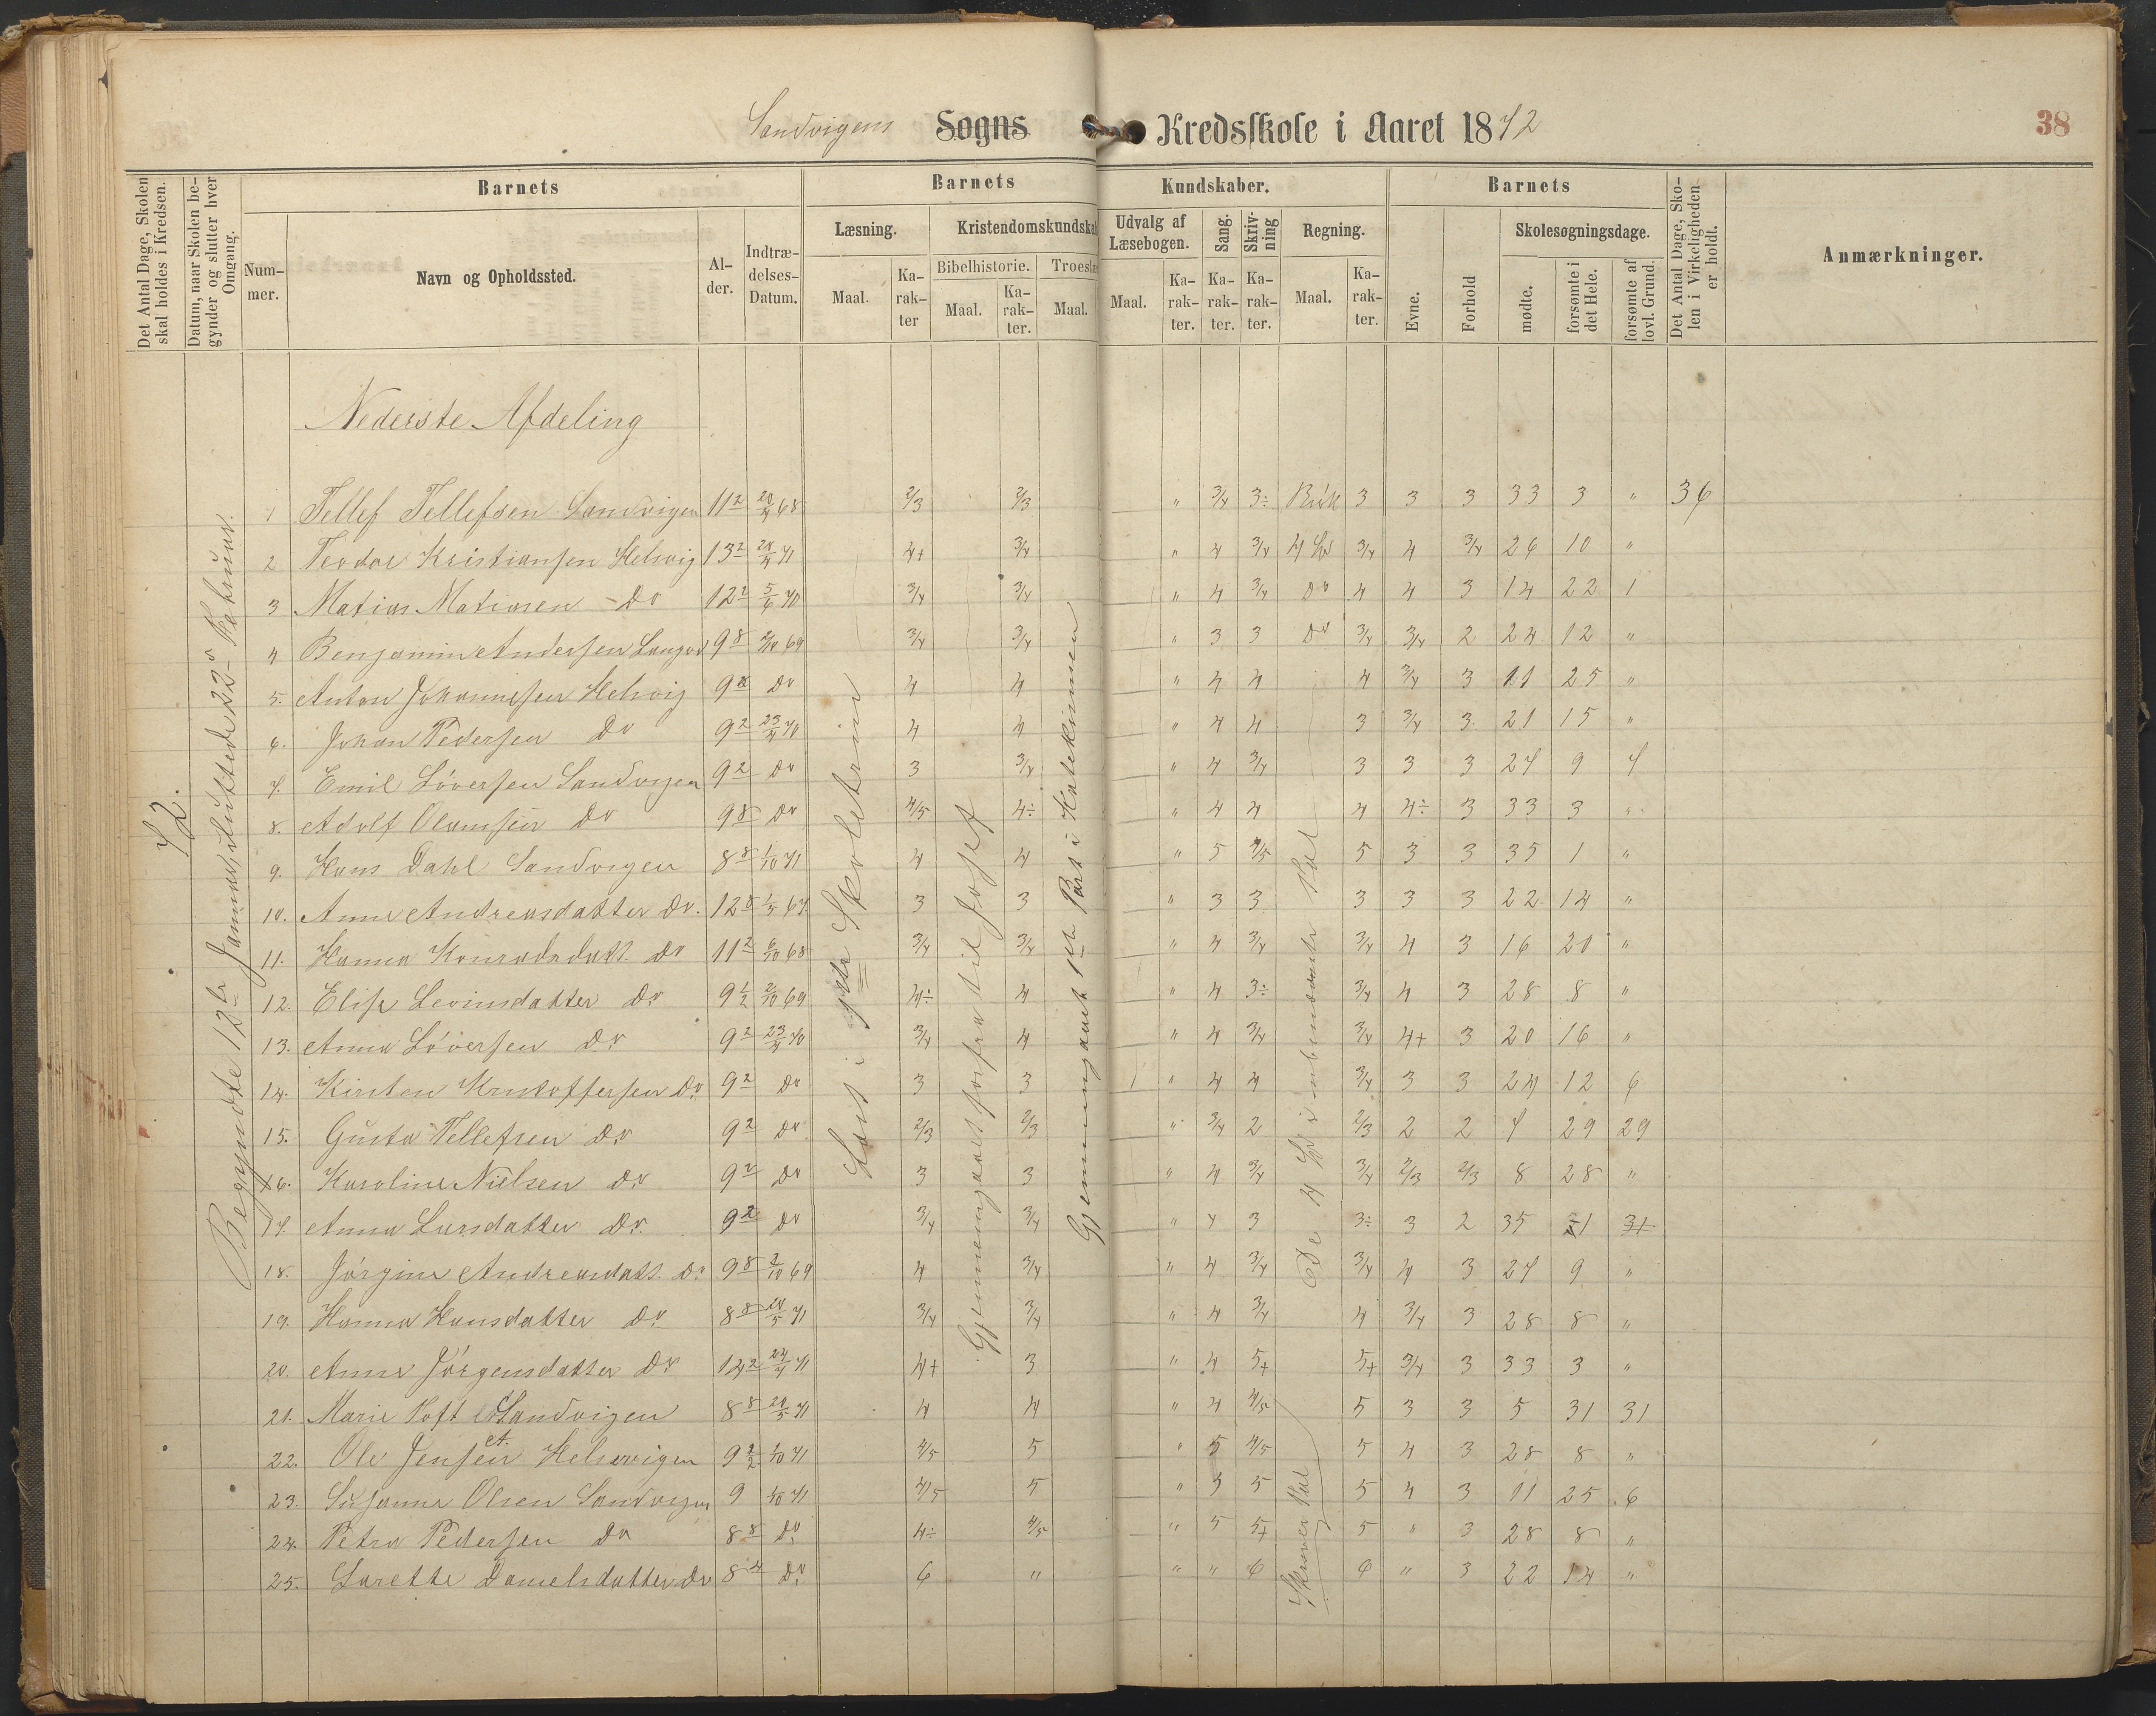 Sandvigens Sogns Kredsskole i Aaret 1872
38
Det Antal Dage, Skolen skal holdes i Kredsen.
Datum, naar Skolen begynder og slutter hver Omgang.
Barnets
Num-mer.
Navn og Opholdssted.
Al-der.
Indtræ-delses-Datum.
Barnets Kundskaber.
Læsning.
Maal.
Ka-rak-ter
Kristendomskundska
Bibelhistorie.
Maal.
Ka-rak-ter.
Troeslæ
Maal.
Udvalg af Læsebogen.
Maal.
Ka-rak-ter.
Sang.
Ka-rak-ter.
Skriv-ning
Ka-rak-ter.
Regning.
Maal.
Ka-rak-ter.
Barnets
Evne.
Forhold
Skolesøgningsdage.
mødte.
forsømte i det Hele.
forsømte af lovl. Grund.
Det Antal Dage, Sko-len i Virkeligheden er holdt.
Anmærkninger.
72.
Begyndte 12te Januar, sluttede 22de Februar.
Læst i Skoletrin
Gjennemgaaet forfra til Josef
Gjennemgaaet 1ste Part i Katekismen
De 4 Sp i ubenævnte Tal
Skriver Tal
Nederste Afdeling
1 Tellef Tellefsen Sandvigen 11 2 20/4 68 2/3 2/3 " 3/4 3÷ 3 3 3 33 3 " 36
2 Teodor Kristiansen Helvig 13 2 24/4 71 4+ 3/4 " 4 3/4 4 Sp 3/4 4 3/4 26 10 "
3 Matias Matiasen Do 12 2 5/6 70 3/4 3/4 " 4 3/4 Do 4 4 3 14 22 1
4 Benjamin Andersen 9 8 2/10 69 3/4 3/4 " 3 3 Do 3/4 3/4 2 24 12 "
5. Anton Johannesen Helvig 9 8 Do 4 4 " 4 4 4 3/4 3 11 25 "
6. Johan Pedersen Do 9 2 23/4 70 4 4 " 4 4 3 3/4 3 21 15 "
7. Emil Löversen Sandvigen 9 2 Do 3 3/4 " 4 3/4 3 3 3 27 9 7
8. Adolf Olamsen Do 9 8 Do 4/5 4÷ " 4 4 4 4÷ 3 33 3 "
9. Hans Dahl Sandvigen 8 8 1/10 71 4 4 " 5 4/5 5 3 3 35 1 "
10. Anne Andreasdatter Do. 12 8 1/5 67 3 3 " 3 3 3 3 3 22 14 "
11. Hanna Konradsdatt. Do 11 2 6/10 68 3/4 3/4 " 4 3/4 3/4 4 3 16 20 "
12. Elise Levinsdatter Do 9 1/2 2/10 69 4÷ 4 " 4 3÷ 3/4 4 3 28 8 "
13. Anna Löversen Do 9 2 23/4 70 3/4 4 " 4 3/4 3/4 4+ 3 20 16 "
14. Kirsten Kristoffersen Do 9 2 Do 3 3 " 4 4 3/4 3 3 24 12 6
15. Gusta Tellefsen Do 9 2 Do 2/3 2/3 " 3/4 2 2/3 2 2 7 29 29
16. Karoline Nielsen Do 9 2 Do 3 3 " 4 3/4 3/4 2/3 2/3 8 28 "
17. Anna Larsdatter Do. 9 2 Do 3/4 3/4 " 4 3 3÷ 3 2 35 1 31
18. Jörgine Andreasdatt. Do 9 8 2/10 69 4 3/4 " 4 3/4 3/4 4 3 27 9 "
19. Hanna Hansdatter Do 8 8 20/5 71 3/4 3/4 " 4 3/4 4 3/4 3 28 8 "
20. Anne Jörgensdatter Do 12 2 24/4 71 4+ 3 " 4 5+ 5+ 3/4 3 33 3 "
21. Marie Toft Sandvigen 8 8 20/5 71 4 4 " 4 4/5 5 3 3 5 31 31
22. Ole Jensen Helvigen 9 1/2 1/10 71 4/5 5 " 5 4/5 5 4 3 28 8 "
23. Susanne Olsen Sandvigen 9 1/10 71 4/5 5 " 5 5 5 4 3 11 25 6
24. Petra Pedersen Do 8 8 Do 4÷ 4/5 " 5 5+ 5 " 3 28 8 "
25. Lorette Danielsdatter Do 8 4 Do 6 " " " 6 6 " 3 22 14 "